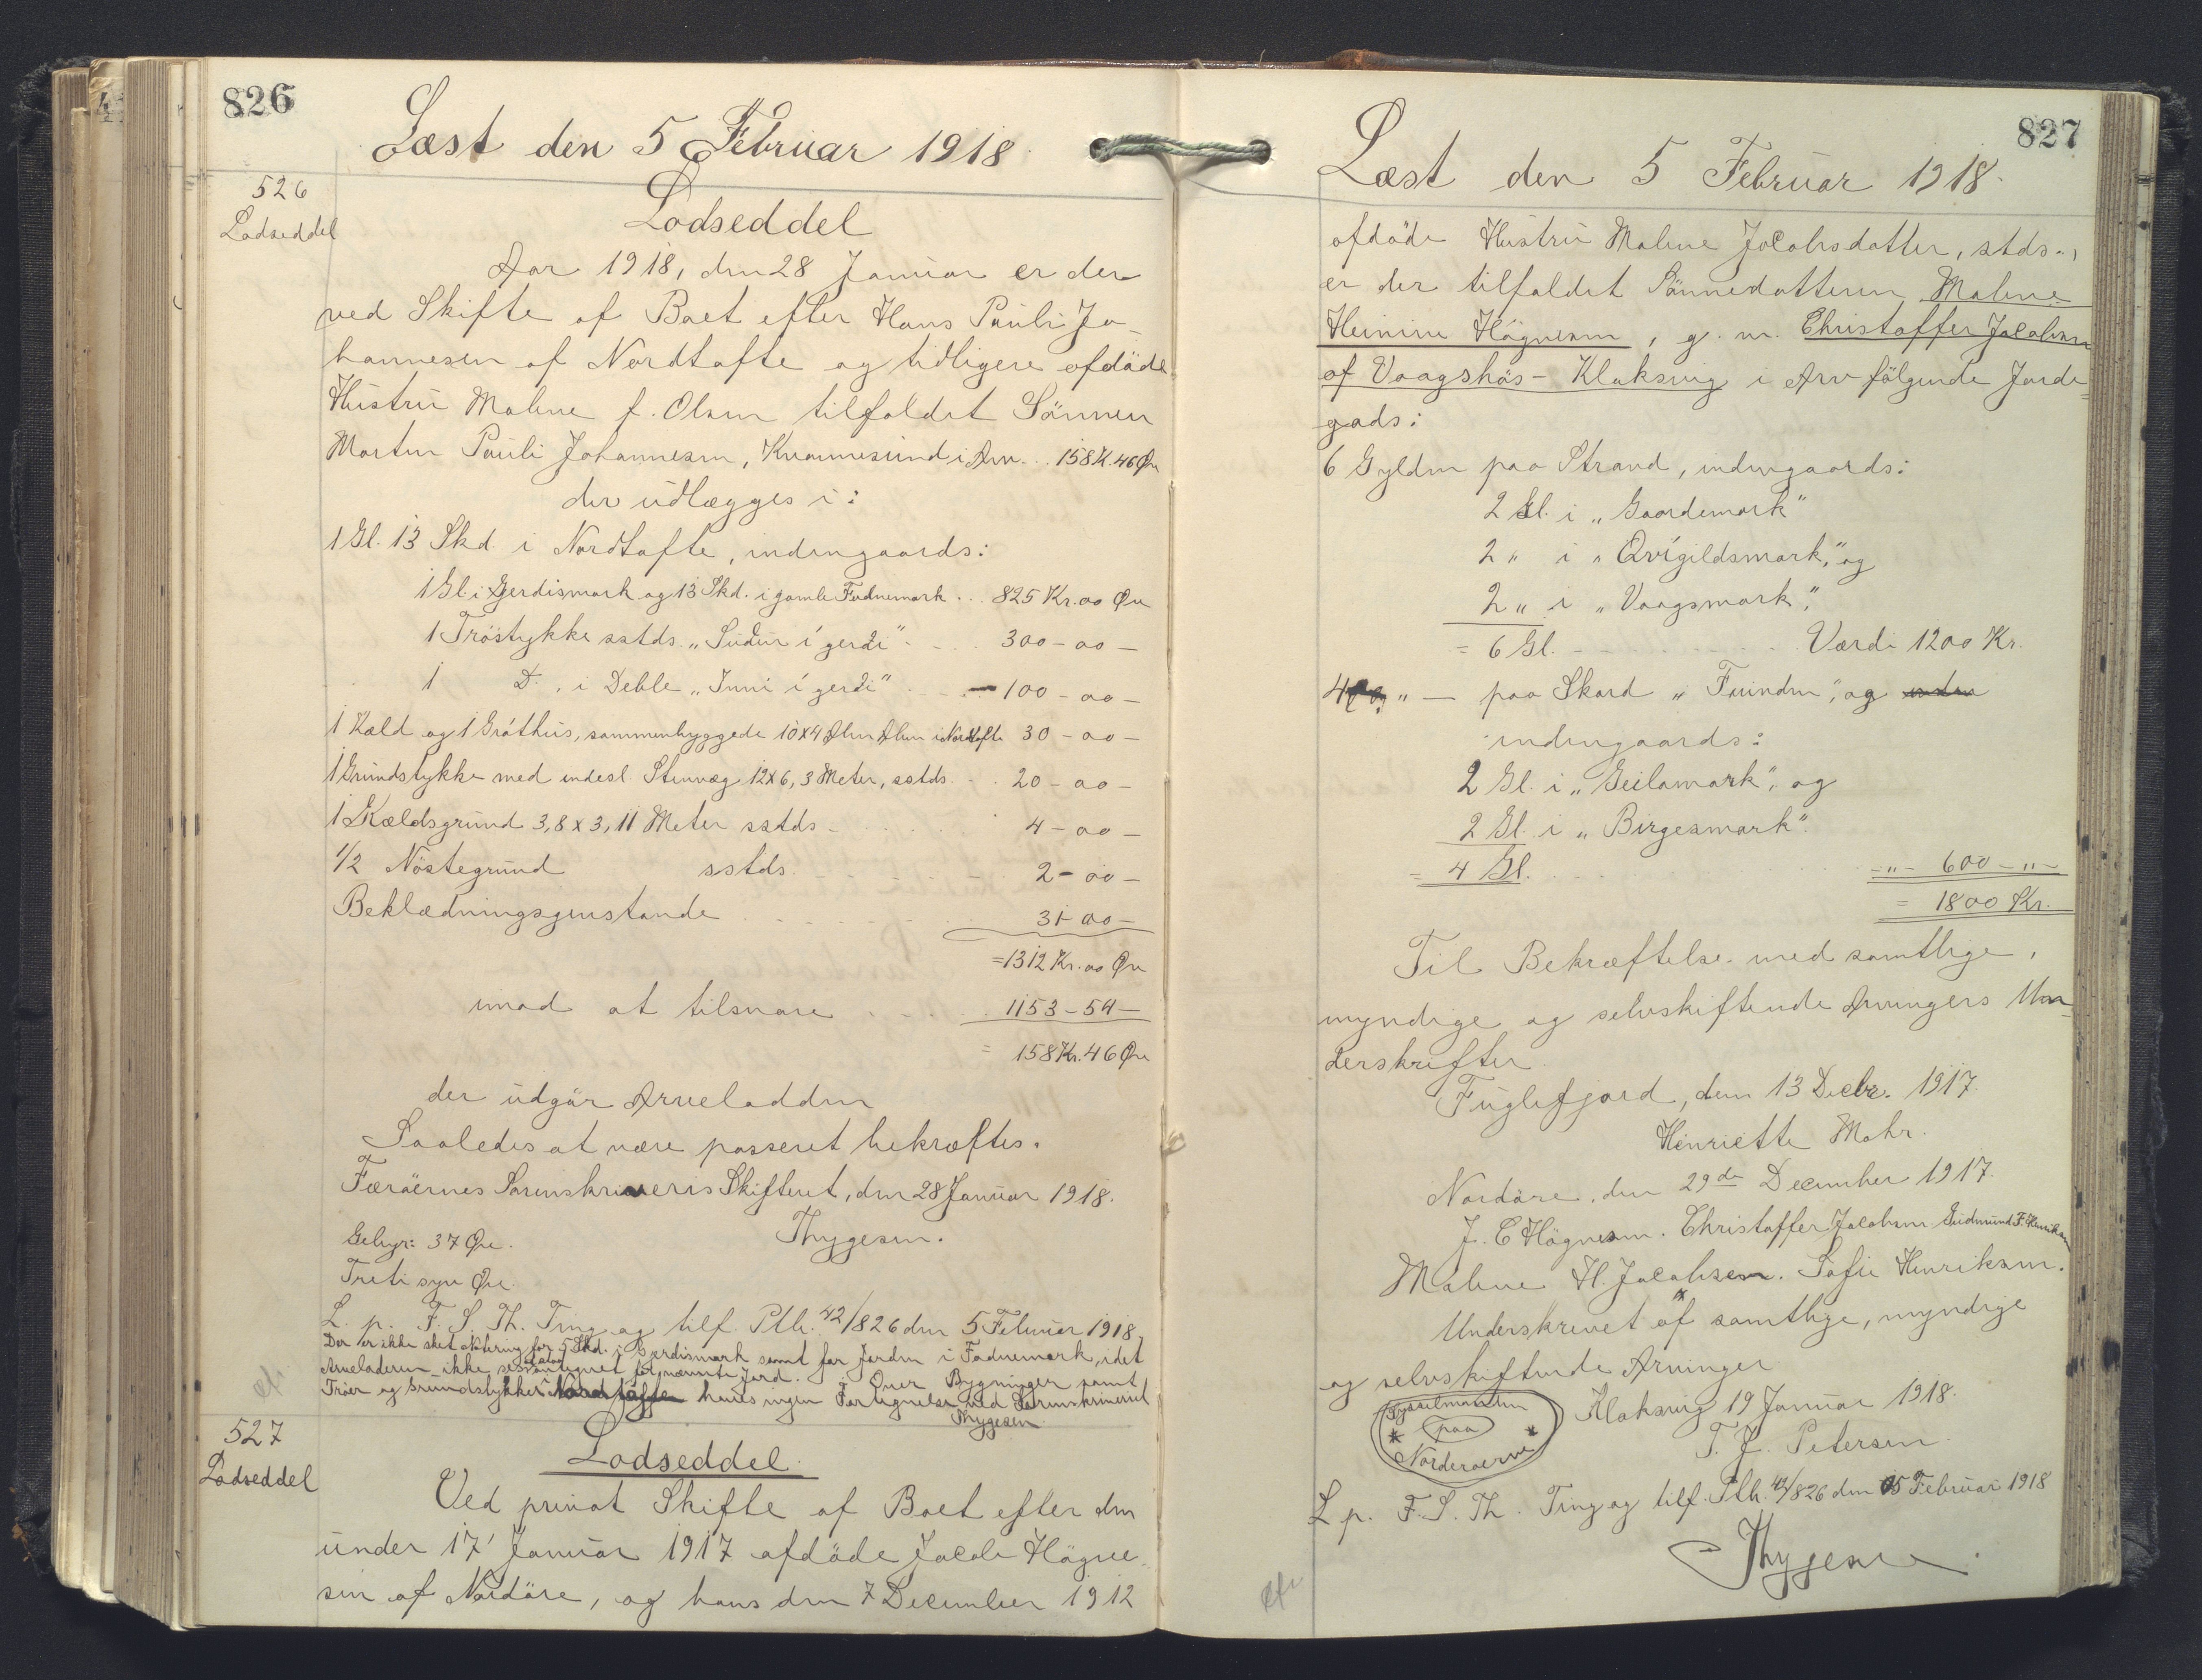 826
Læst den 5 Februar 1918
526
Lodseddel
Lodseddel
Aar 1918, den 28 Januar er der
ved Skifte af Boet efter Hans Pauli Jo-
hannesen af Nordtofte og tidligere afdöde
Hustru Malene f. Olsen tilfaldet Sönnen
Morten Pauli Johannesen, Kvannesund i Arv... 158 K. 46 Øre
der udlægges i:
1 Gl. 13 Skd. i Nordtofte, indengaards:
1 Gl. i Gjerdismark og 13 Skd. i gamle Fodnemark... 825 Kr. 00 Øre
1 Tröstykke sstds. „Sudur í gerdi" - - . . 300 - 00 -
1 D., i Deble „Inni í gerdi" . . . - 100 - 00 -
1 Kæld og 1 Gróthus, sammenbyggede 10x4 Alen Alen i Nordtofte 30 - 00 -
1 Grundstykke med indesl. Stenvæg 12x6,3 Meter, sstds. - . 20 - 00 -
1 Kældsgrund 3,8 x 3,11 Meter sstds - . . . . 4 - 00 -
1/2 Nöstegrund sstds. - - - - - - . 2 - 00 -
Beklædningsgenstande . . - - - - . 31 - 00 -
= 1312 Kr. 00 Øre
imod at tilsvare . - - . . . 1153 - 54 -
= 158 Kr. 46 Øre
der udgör Arvelodden
Saaledes at være passeret bekræftes.
Færöernes Sorenskriveris Skifteret, den 28 Januar 1918.
Thygesen.
Gebyr: 37 Øre.
Treti syv Øre.
L. p. F. S. Th. Ting og tilf. Ptb. 42/826 den 5 Februar 1918,
Der er ikke sket Notering for 5 Skd. i Gærdismark samt for Jorden i Fodnemark, idet
Arveladeren ikke ses antegnet for nævnte Jord. Over Bygninger samt
Tröer og Grundstykker i Nordtofte haves ingen Fortegnelse ved Sorenskriveriet
Thygesen
527
Lodseddel
Lodseddel.
Ved privat Skifte af Boet efter den
under 17' Januar 1917 afdöde Jacob Högne-
sen af Nordöre, og hans den 7 December 1912
827
Læst den 5 Februar 1918.
afdöde Hustru Malene Jacobsdatter, stds.,
er der tilfaldet Sönnedatteren Malene
Heinine Högnesen, g. m. Christoffer Jacobsen
af Vaagshös - Klaksvig i Arv fölgende Jorde-
gods:
6 Gylden paa Strand, indengaards:
2 Gl. i „Gaardemark"
2 " i „Qvígildsmark", og
2 " i „Vaagsmark",
= 6 Gl. - - . . . . . . Værdi 1200 Kr.
4 " - paa Skard „Fuinden", og
indengaards:
2 Gl. i „Geilamark", og
2 Gl. i „Birgesmark".
= 4 Gl. . . . . . . -"- 600 -"-
= 1800 Kr.
Til Bekræftelse med samtlige,
myndige og selvskiftende Arvingers Un-
derskrifter.
Fuglefjord, den 13 Decbr. 1917.
Henriette Mohr.
Nordöre, den 29de December 1917.
J. C Högnesen. Christoffer Jacobsen Gudmund F. Henriksen
Malene H. Jacobsen. Sofie Henriksen.
Underskrevet af samtlige, myndige
og selvskiftende Arvinger
Sysselmanden
paa
Norderøerne
Klaksvig 19 Januar 1918.
T. J. Petersen
L p. F. S. Th. Ting og tilf. Ptb. 42/826 den 5 Februar 1918
Thygesen